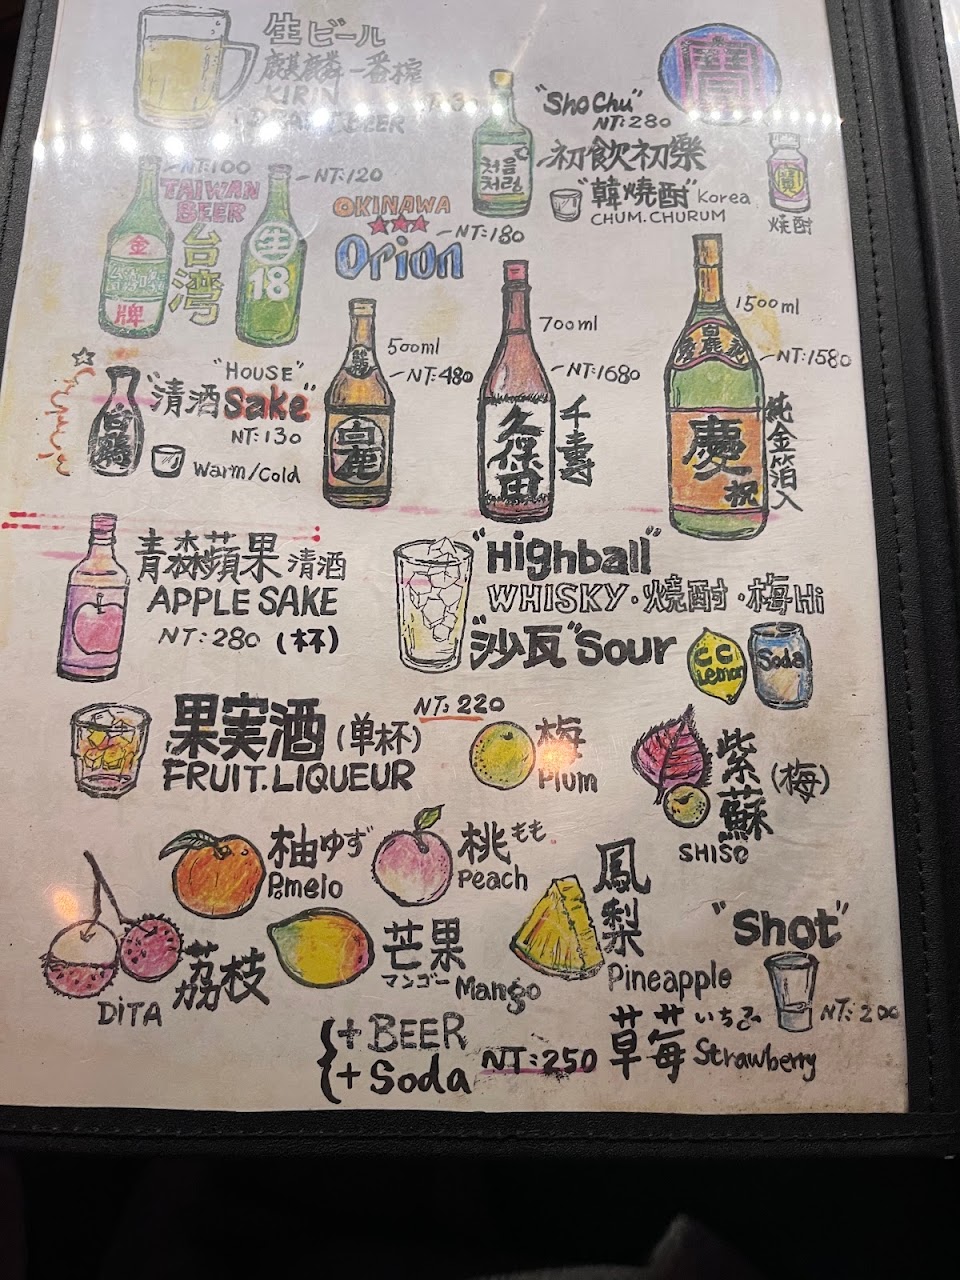 生ビール
麒麟一番搾
KIRIN
BEER
"Sho Chu"
NT:280
寶
처음
처럼
初飲初樂
"韓燒酎" Korea
CHUM.CHURUM
寶
焼酎
NT:100
TAIWAN
BEER
台湾
金
牌
NT:120
生
18
OKINAWA
Orion
NT:180
"HOUSE"
"清酒Sake"
NT:130
Warm/Cold
白鶴
500ml
NT:480
白鹿
700ml
NT:1680
久保田
千壽
1500ml
NT:1580
白鹿
慶
祝
純金箔入
青森蘋果 清酒
APPLE SAKE
NT:280 (杯)
"Highball"
WHISKY・燒酎・梅Hi
"沙瓦"Sour
CC
Lemon
Soda
果実酒 (单杯)
FRUIT.LIQUEUR
NT:220
梅
Plum
紫蘇 (梅)
SHISO
柚ゆず
Pomelo
桃もも
Peach
鳳梨
Pineapple
荔枝
DiTA
芒果
マンゴー Mango
"Shot"
NT:200
草莓 いちご
Strawberry
+ BEER
+ Soda NT:250